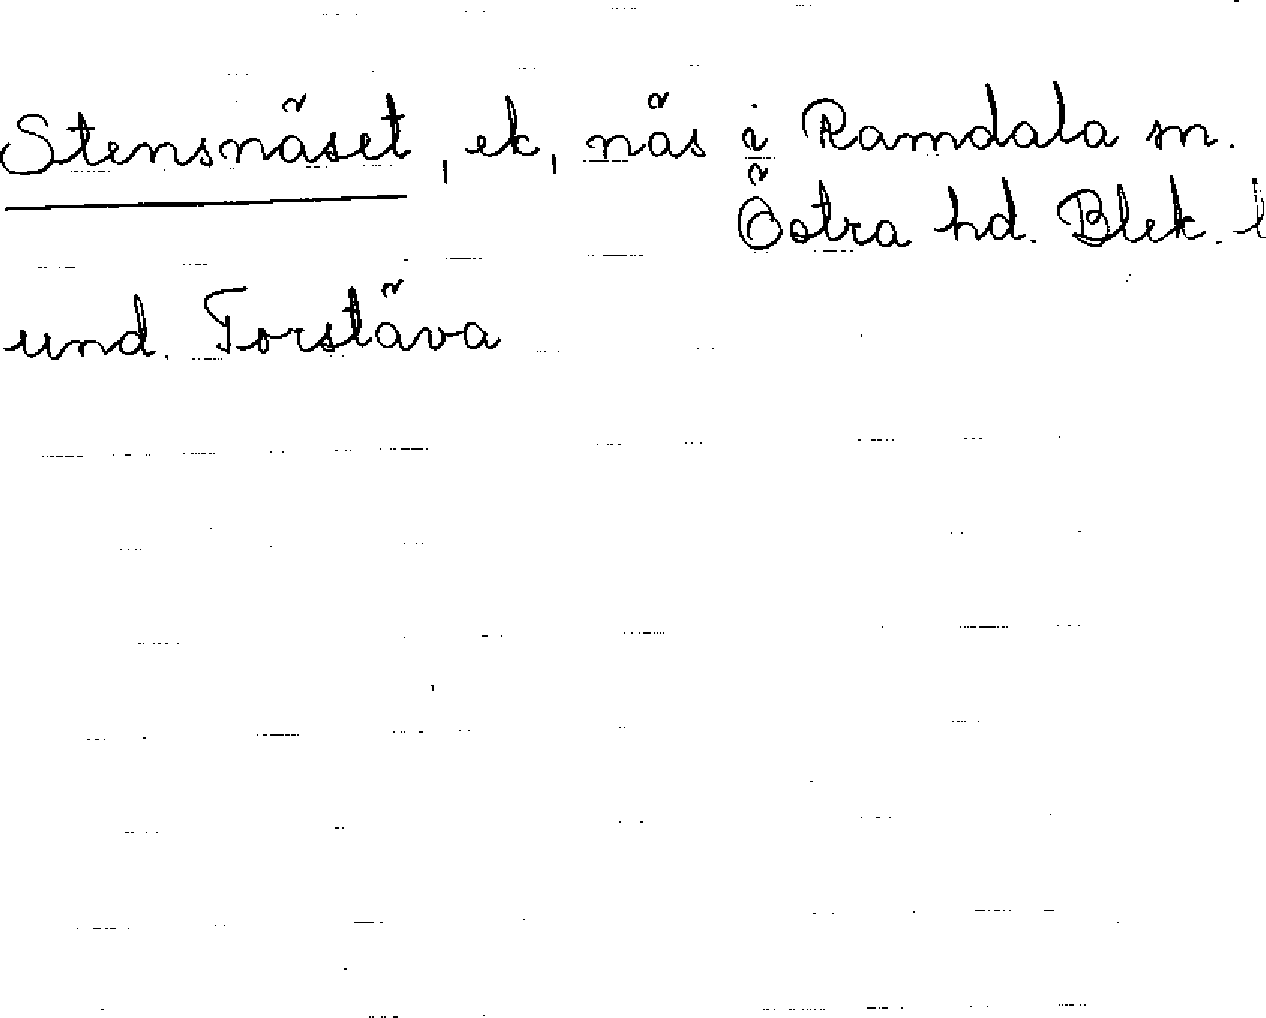 Stensnäset, ek, näs i Ramdala sn.
Östra hd. Blek. l
und. Torstäva